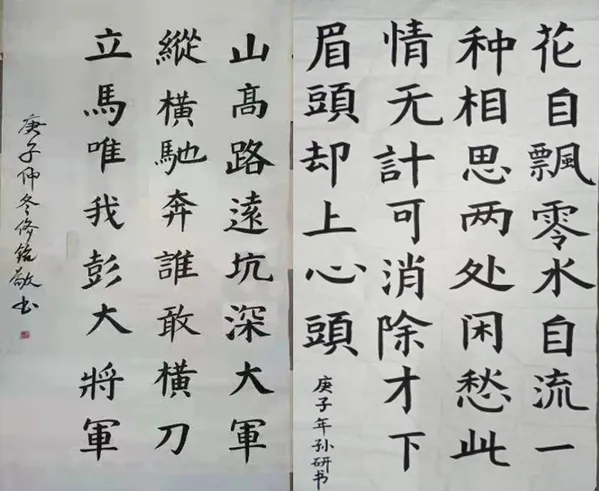 花自飄零水自流一
种相思两处闲愁此
情无計可消除才下
眉頭却上心頭
庚子年孙研书
山髙路遠坑深大軍
縱橫馳奔誰敢橫刀
立馬唯我彭大將軍
庚子仲冬修铭敬书